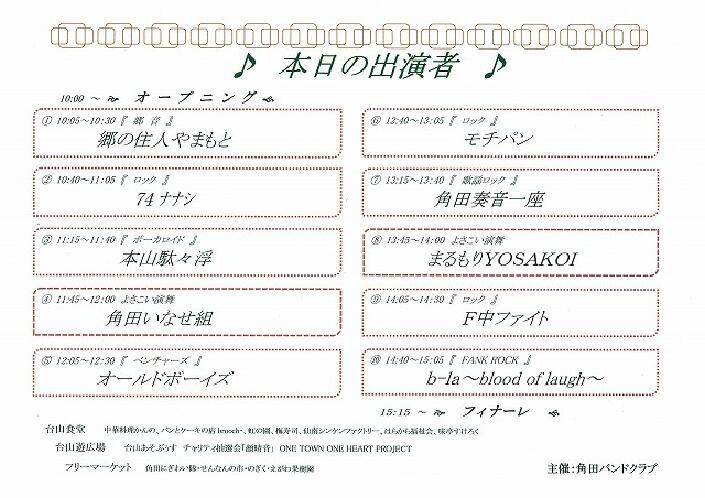 ♪ 本日の出演者 ♪
10:00 ～ オープニング
① 10:05～10:30『 郷 音 』
郷の住人やまもと
② 10:40～11:05『 ロック 』
74ナナシ
③ 11:15～11:40『 ボーカロイド 』
本山駄々浮
④ 11:45～12:00 よさこい演舞
角田いなせ組
⑤ 12:05～12:30『 ベンチャーズ 』
オールドボーイズ
⑥ 12:40～13:05『 ロック 』
モチパン
⑦ 13:15～13:40『 歌謡ロック 』
角田奏音一座
⑧ 13:45～14:00 よさこい演舞
まるもりYOSAKOI
⑨ 14:05～14:30『 ロック 』
F中ファイト
⑩ 14:40～15:05『 FANK ROCK 』
b-1a～blood of laugh～
15:15 ～ フィナーレ
台山食堂 中華料理かんの、パンとケーキの店brooch、虹の園、梅寿司、仙南シンケンファクトリー、はらから福祉会、味亭すけろく
台山遊広場 台山あそぶぅす チャリティ抽選会「顔晴音」 ONE TOWN ONE HEART PROJECT
フリーマーケット 角田にぎわい隊・せんなんの市・のぎく・えがわ果樹園
主催:角田バンドクラブ